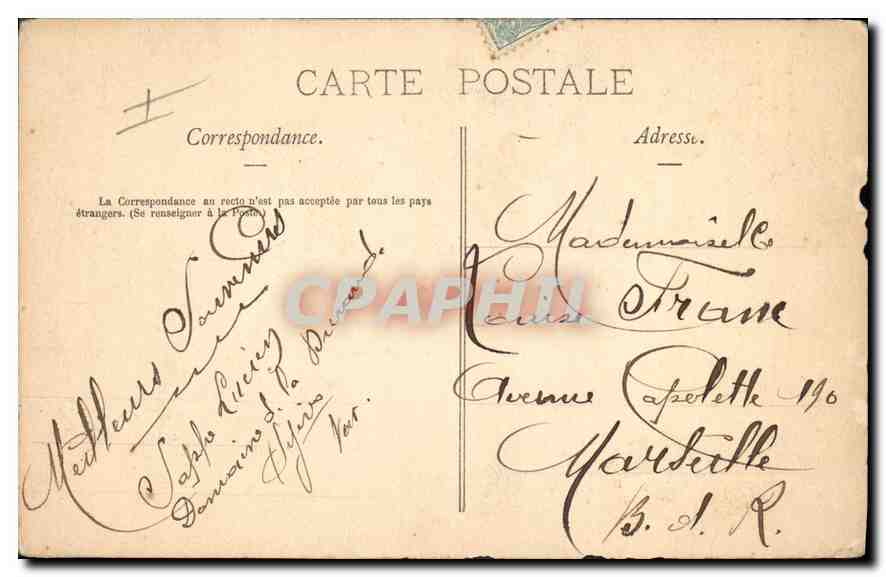 CARTE POSTALE
Correspondance.
La Correspondance au recto n'est pas acceptée par tous les pays
étrangers. (Se renseigner à la Poste.)
Meilleurs Souvenirs
Sappe Lucien
Domaine de la
Var.
Adresse.
Mademoiselle
Louise Franc
Avenue Capelette 190
Marseille
B. d. R.
CPAPHIL